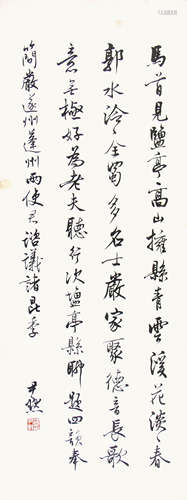 馬首見鹽亭高山擁縣青雲溪花淡〻春
郭水泠〻全蜀多名士嚴家聚德音長歌
意無極好為老夫聽行次鹽亭縣聊題四韻奉
簡嚴遂州蓬州兩使君諮議諸昆季
尹默